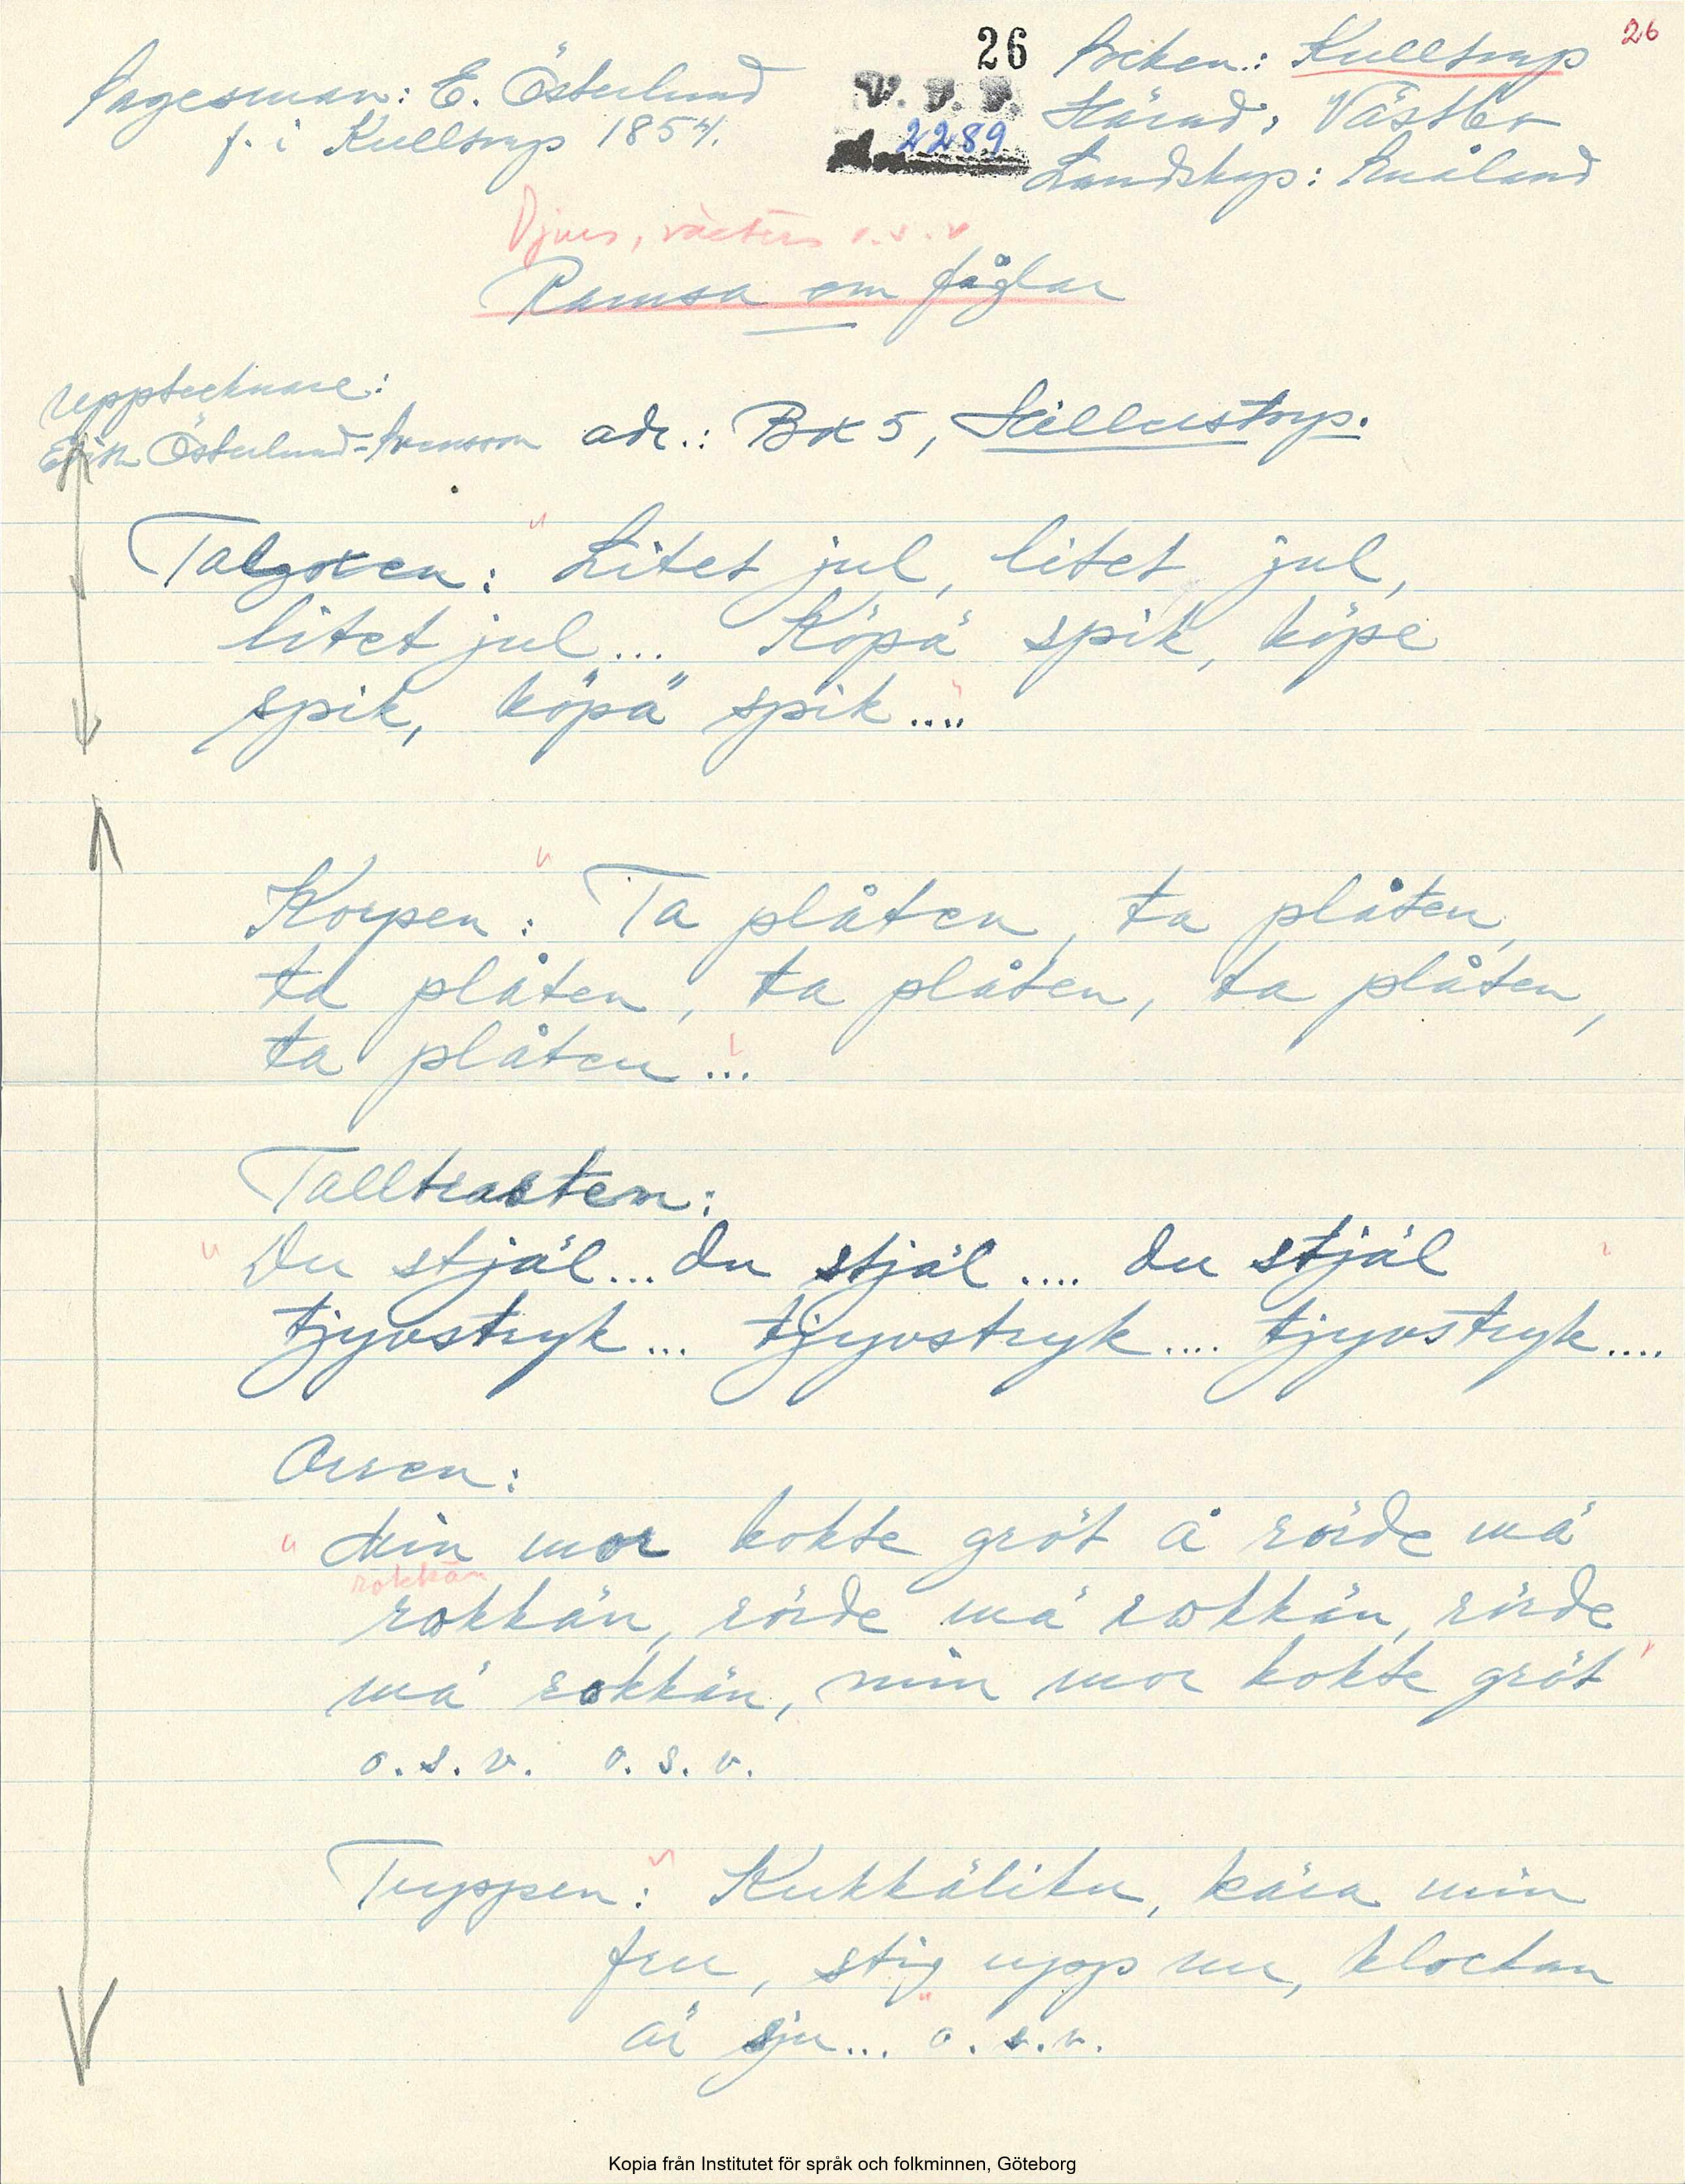 26
26
Sagesman: E. Österlund
f. i Kulltorp 1854.
V. F. F.
2289
Socken: Kulltorp
Härad: Västbo
Landskap: Småland
Djurs, växters o.s.v
Ramsa om fåglar
Upptecknare:
Österlund-Svensson adr.: Box 5, Hillerstorp.
Talgoxen: "Litet jul, litet jul,
litet jul... Köpä spik, köpe
spik, köpä spik...."
Korpen: "Ta plåten, ta plåten,
ta plåten, ta plåten, ta plåten,
ta plåten..."
Talltrasten:
"Du stjäl... du stjäl.... du stjäl"
tjyvstryk... tjyvstryk.... tjyvstryk....
Orren:
"Min mor kokte gröt å rörde mä
rokkän
rokkän, rörde mä rokkän, rörde
mä rokkän, min mor kokte gröt"
o.s.v. o.s.v.
Tuppen: "Kukkäliku, kära min
fru, stig upp nu, klockan
är sju..." o.s.v.
Kopia från Institutet för språk och folkminnen, Göteborg